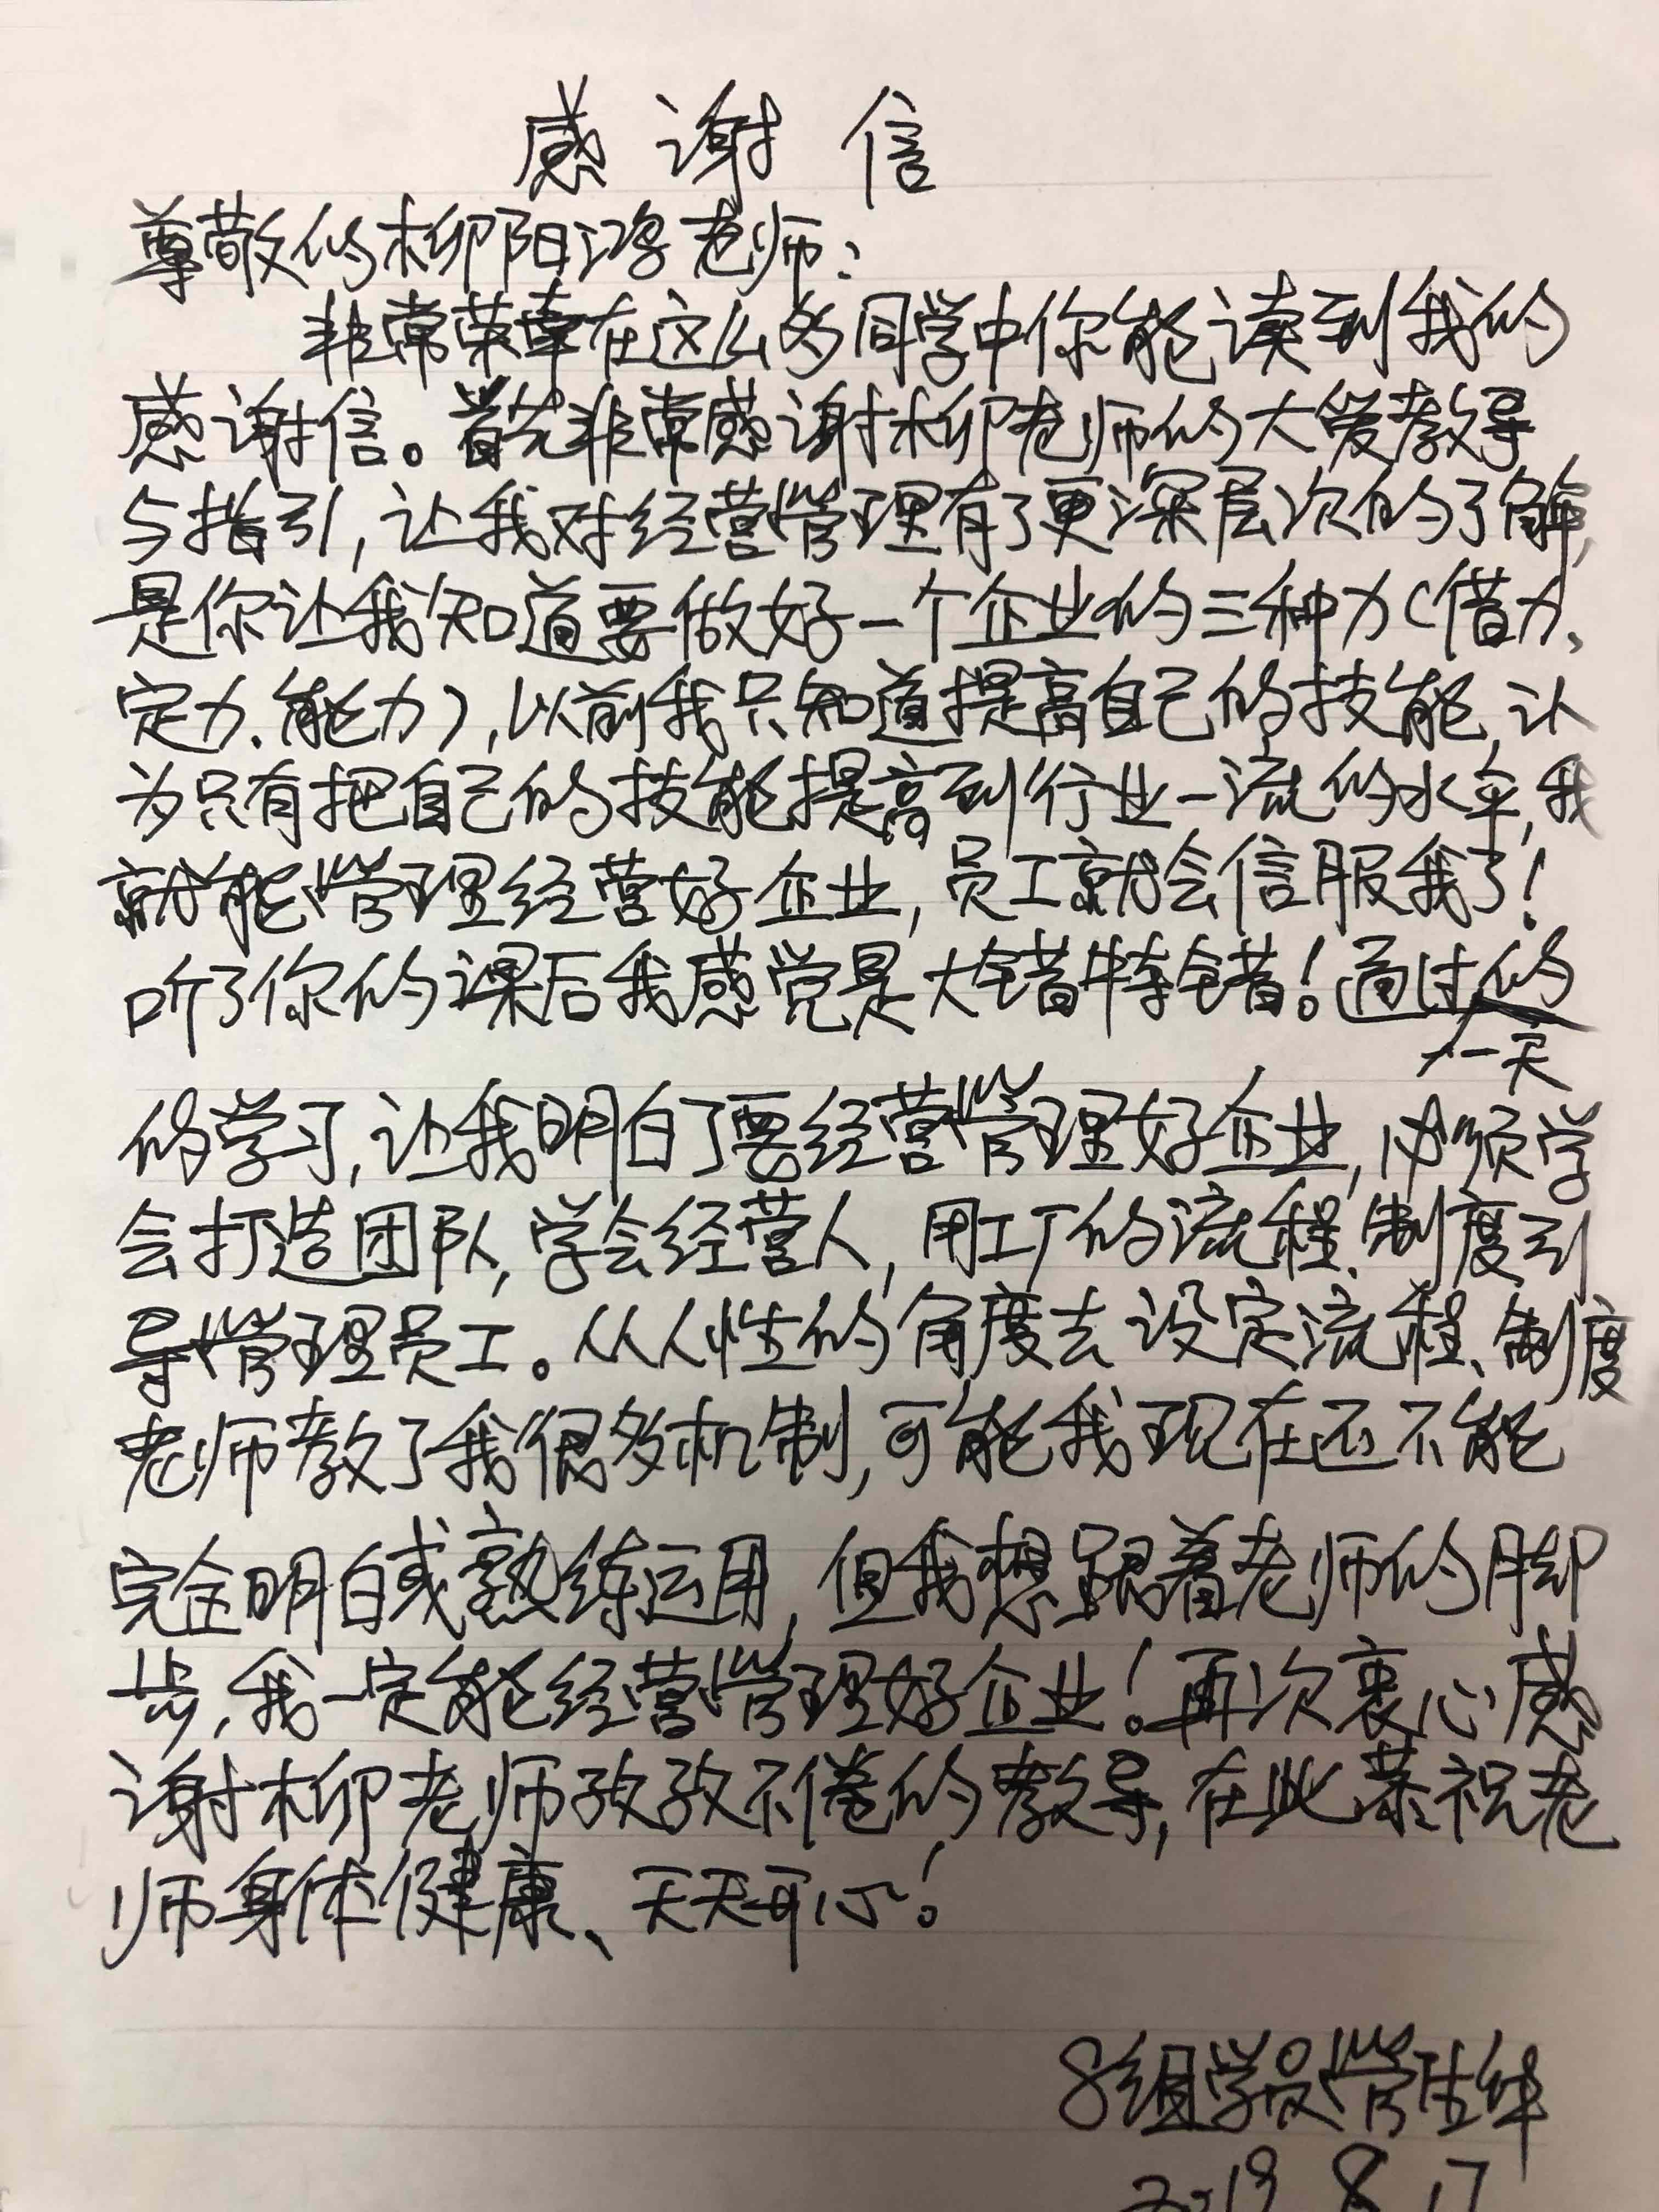 感谢信
尊敬的柳阳鸿老师：
非常荣幸在这么多同学中你能读到我的
感谢信。首先非常感谢柳老师的大爱教导
与指引，让我对经营管理有了更深层次的了解，
是你让我知道要做好一个企业的三种力（借力、
定力、能力），以前我只知道提高自己的技能，认
为只有把自己的技能提高到行业一流的水平，我
就能管理经营好企业，员工就会信服我了！
听了你的课后我感觉是大错特错！通过
一天
的学习，让我明白了要经营管理好企业，必须学
会打造团队，学会经营人，用工厂的流程、制度引
导管理员工。从人性的角度去设定流程、制度
老师教了我很多机制，可能我现在还不能
完全明白或熟练运用，但我想跟着老师的脚
步，我一定能经营管理好企业！再次衷心感
谢柳老师孜孜不倦的教导，在此恭祝老
师身体健康、天天开心！
8组学员管
2019.8.17